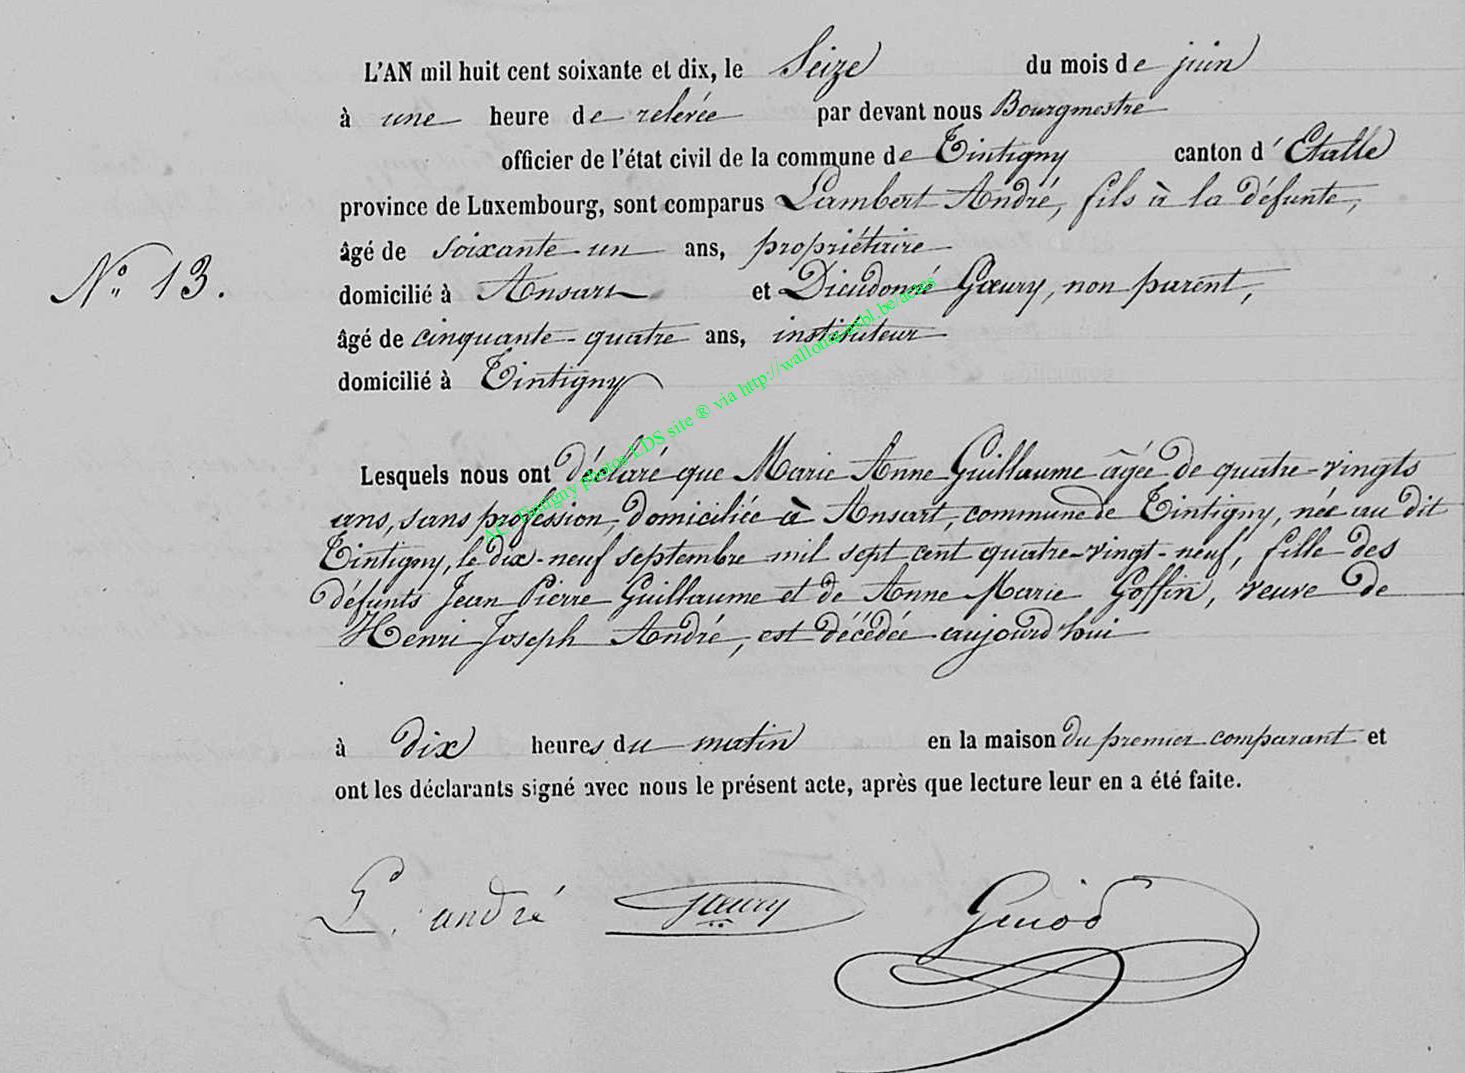 L'AN mil huit cent soixante et dix, le Seize du mois de juin
à une heure de relevée par devant nous Bourgmestre
officier de l'état civil de la commune de Tintigny canton d'Etalle
province de Luxembourg, sont comparus Lambert André, fils à la défunte,
âgé de soixante-un ans, propriétaire
N° 13.
domicilié à Ansart et Dieudonné Gœury, non parent,
âgé de cinquante-quatre ans, instituteur
domicilié à Tintigny
Lesquels nous ont déclaré que Marie Anne Guillaume âgée de quatre-vingts
ans, sans profession, domiciliée à Ansart, commune de Tintigny, née au dit
Tintigny, le dix-neuf septembre mil sept cent quatre-vingt-neuf, fille des
défunts Jean Pierre Guillaume et de Anne Marie Goffin, veuve de
Henri Joseph André, est décédée aujourd'hui
à dix heures du matin en la maison du premier comparant et
ont les déclarants signé avec nous le présent acte, après que lecture leur en a été faite.
L. andré Gœury
AC. Tintigny photos LDS site ® via http://wallonia-asbl.be/actes